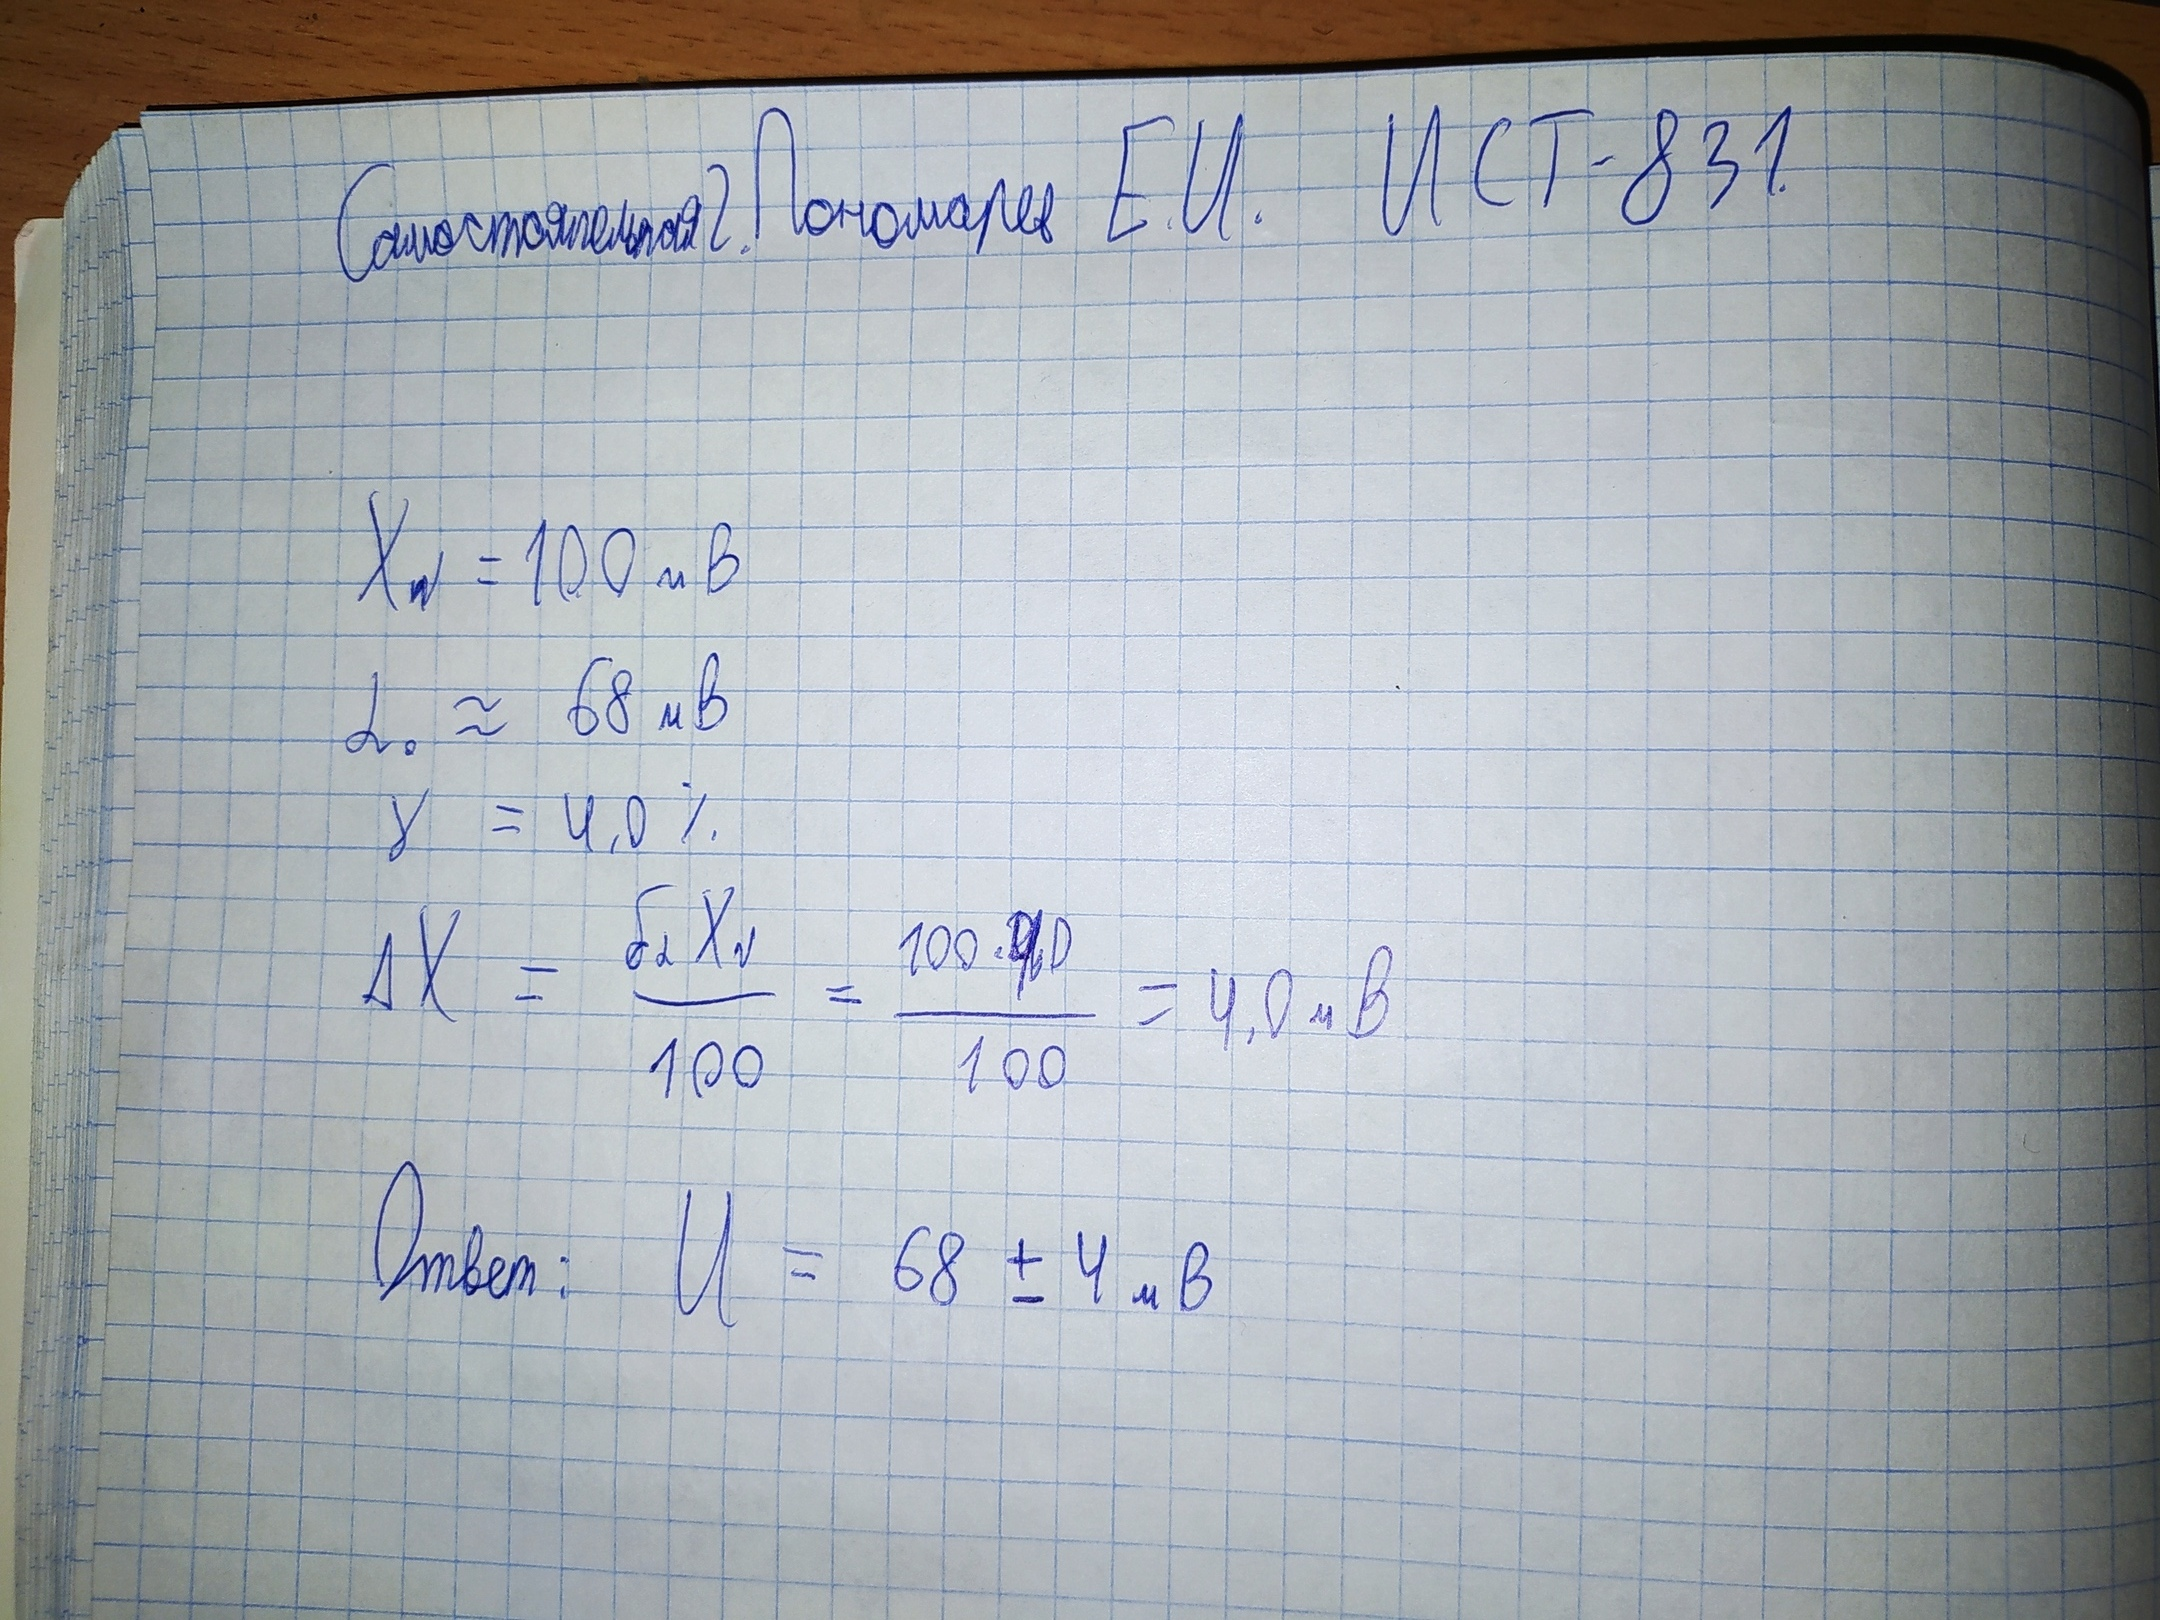 Самостоятельная 2. Пономарев Е.И. ИСТ-831.
X_N = 100 мВ
α₀ ≈ 68 мВ
γ = 4,0 %
ΔX = δα X_N / 100 = 100·4,0 / 100 = 4,0 мВ
Ответ: U = 68 ± 4 мВ